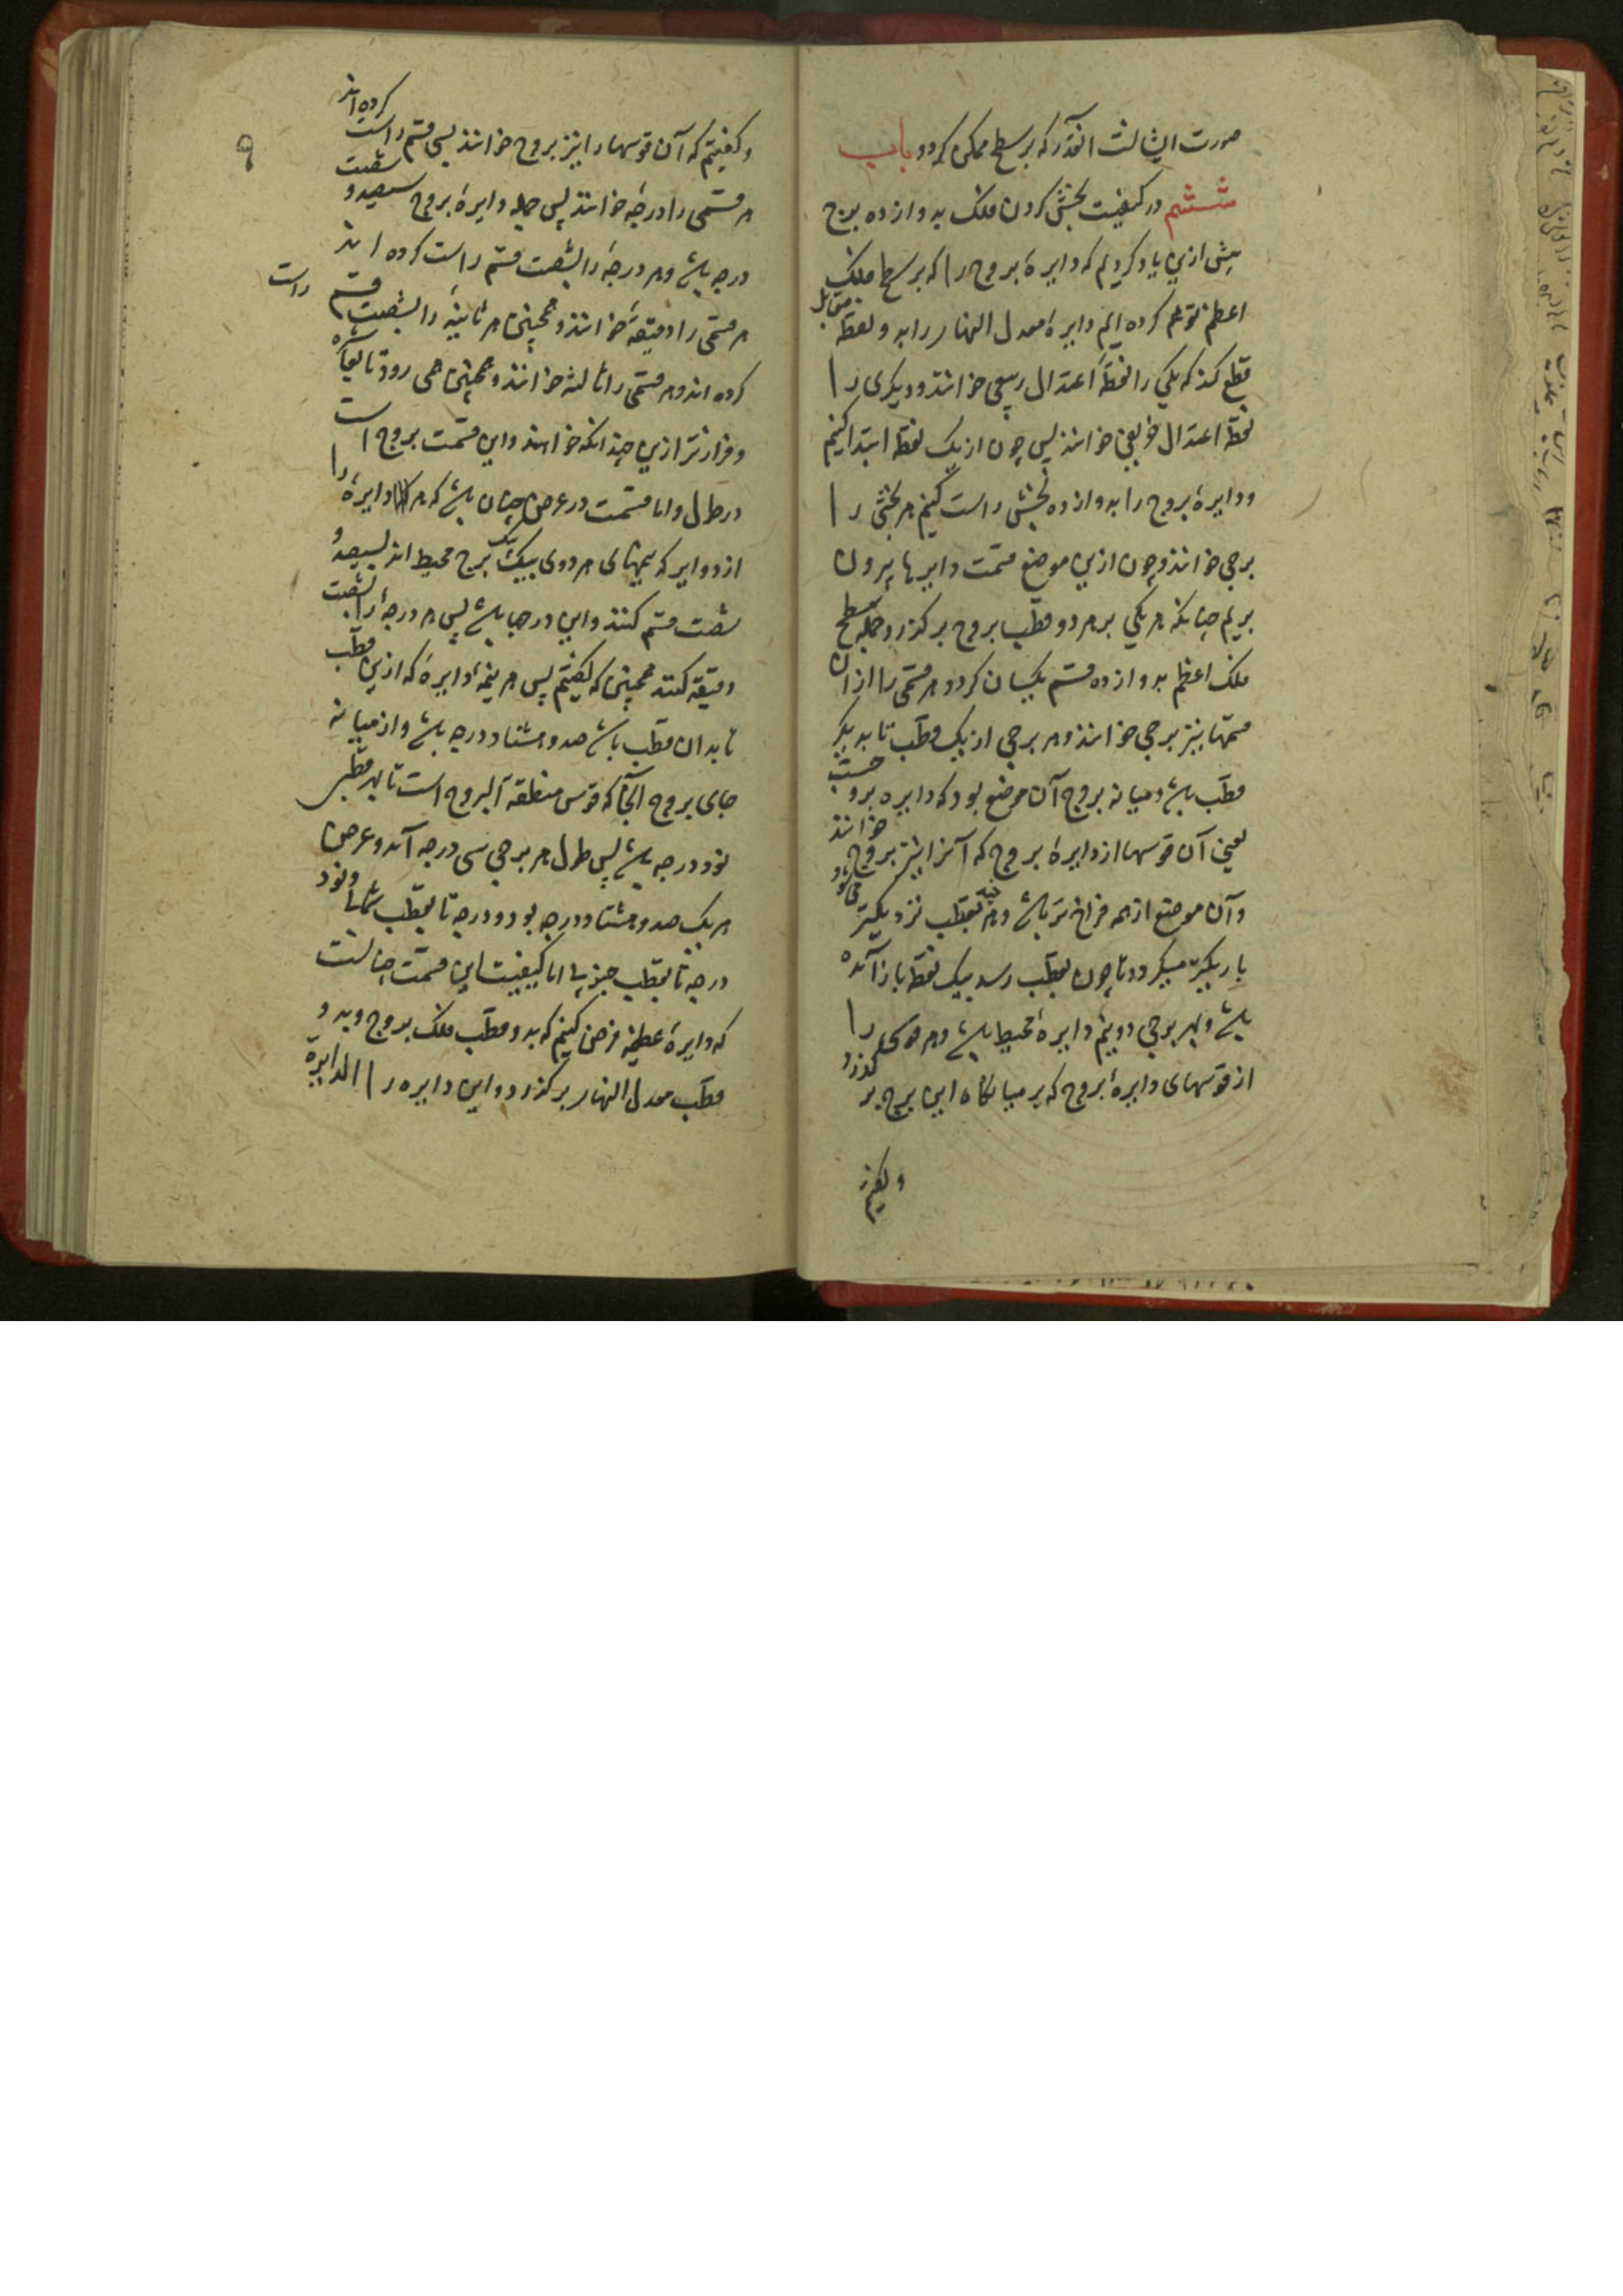 صورت ایشانست انقدر که بر سطح ممکن کردد باب
ششم در کیفیت بخش کردن فلک بدوازده برج
پیش ازین یاد کردیم که دایرهٔ بروج را که بر سطح فلک
اعظم توهم کرده ایم دایرهٔ معدل النهار را بدو نقطهٔ متقابل
قطع کند که یکی را نقطهٔ اعتدال ربیعی خوانند و دیکری را
نقطهٔ اعتدال خریفی خوانند پس چون از یک نقطه ابتدا کنیم
و دایرهٔ بروج را بدوازده بخش راست کنیم هر بخشی را
برجی خوانند و چون ازین موضع قسمت دایرها بیرون
بریم چنانکه هر یکی بر هر دو قطب بروج برکذرد جمله سطح
فلک اعظم بدوازده قسم یکسان کردد و هر قسمی را از ان
قسمها نیز برجی خوانند و هر برجی از یک قطب تا بدیکر
قطب باشد و میانه بروج آن موضع بود که دایره بروجست
یعنی آن قوسها از دایرهٔ بروج که آنرا نیز بروج خوانند
و آن موضع از همه فراخ تر باشد و هر چند بقطب نزدیکتر می شود
باریکتر میکردد تا چون بقطب رسد بیک نقطه باز آمده
باشد و بهر برجی دو نیم دایرهٔ محیط باشد و هر قوسی را
از قوسهای دایرهٔ بروج که بر میانکاه این برج بر کذرد
و کفتیم
۹
و کفتیم که آن قوسها را نیز بروج خوانند بسی قسم راست کرده اند
هر قسمی را درجه خوانند پس جمله دایرهٔ بروج سیصد و شصت
درجه باشد و هر درجهٔ را بشصت قسم راست کرده اند
هر قسمی را دقیقه خوانند و همچنین هر ثانیهٔ را بشصت قسم راست
کرده اند و هر قسمی را ثالثه خوانند و همچنین همی رود تا بعاشره
و فرازتر ازین چندانکه خواهند و این قسمت بروج است
در طول و اما قسمت در عرض چنان باشد که هر دایرهٔ را
از دوایر که نیمهای هر دوی بیک یک برج محیط اند بسیصد و
شصت قسم کنند و این درجها باشد پس هر درجهٔ را بشصت
دقیقه کنند همچنین که کفتیم پس هر نیمهٔ دایرهٔ که ازین قطب
تا بدان قطب باشد صد و هشتاد درجه باشد و از میانه
جای بروج آنجا که قوس منطقة البروج است تا بهر قطبی
نود درجه باشد پس طول هر برجی سی درجه آمد و عرض
هر یک صد و هشتاد درجه بود نود درجه تا بقطب شمالی و نود
درجه تا بقطب جنوبی اما کیفیت این قسمت چنانست
که دایرهٔ عظیمه فرض کنیم که بدو قطب فلک بروج و بدو
قطب معدل النهار برکذرد و این دایره را الدایرة